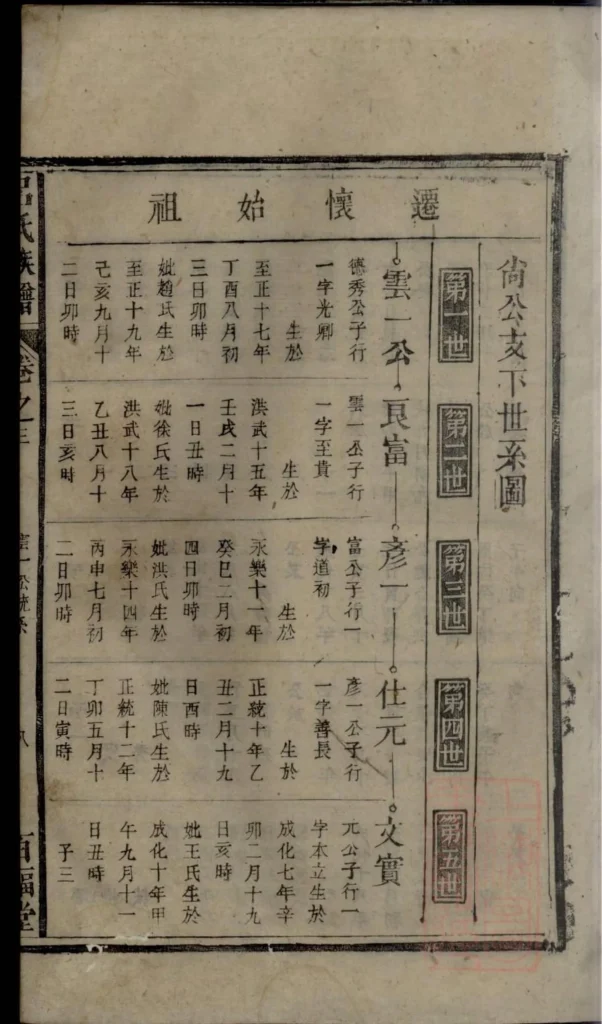 尙公支下世系圖
第一世
第二世
第三世
第四世
第五世
遷懷始祖
雲一公
良富
彥一
仕元
文實
德秀公子行
一字光卿
生於
至正十七年
丁酉八月初
三日卯時
妣趙氏生於
至正十九年
己亥九月十
二日卯時
雲一公子行
一字至貴
生於
洪武十五年
壬戌二月十
一日丑時
妣徐氏生於
洪武十八年
乙丑八月十
三日亥時
富公子行一
字道初
生於
永樂十一年
癸巳二月初
四日卯時
妣洪氏生於
永樂十四年
丙申七月初
二日卯時
彥一公子行
一字善長
生於
正統十年乙
丑二月十九
日酉時
妣陳氏生於
正統十二年
丁卯五月十
二日寅時
元公子行一
字本立生於
成化七年辛
卯二月十九
日亥時
妣王氏生於
成化十年甲
午九月十一
日丑時
子三
呂氏族譜
卷之三
雲一公統系
八
百福堂